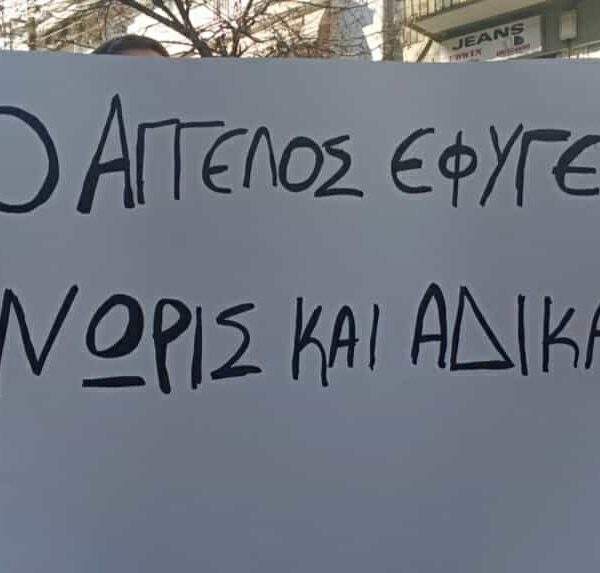 JEANS
Ο ΑΓΓΕΛΟΣ ΕΦΥΓΕ
ΝΩΡΙΣ ΚΑΙ ΑΔΙΚΑ